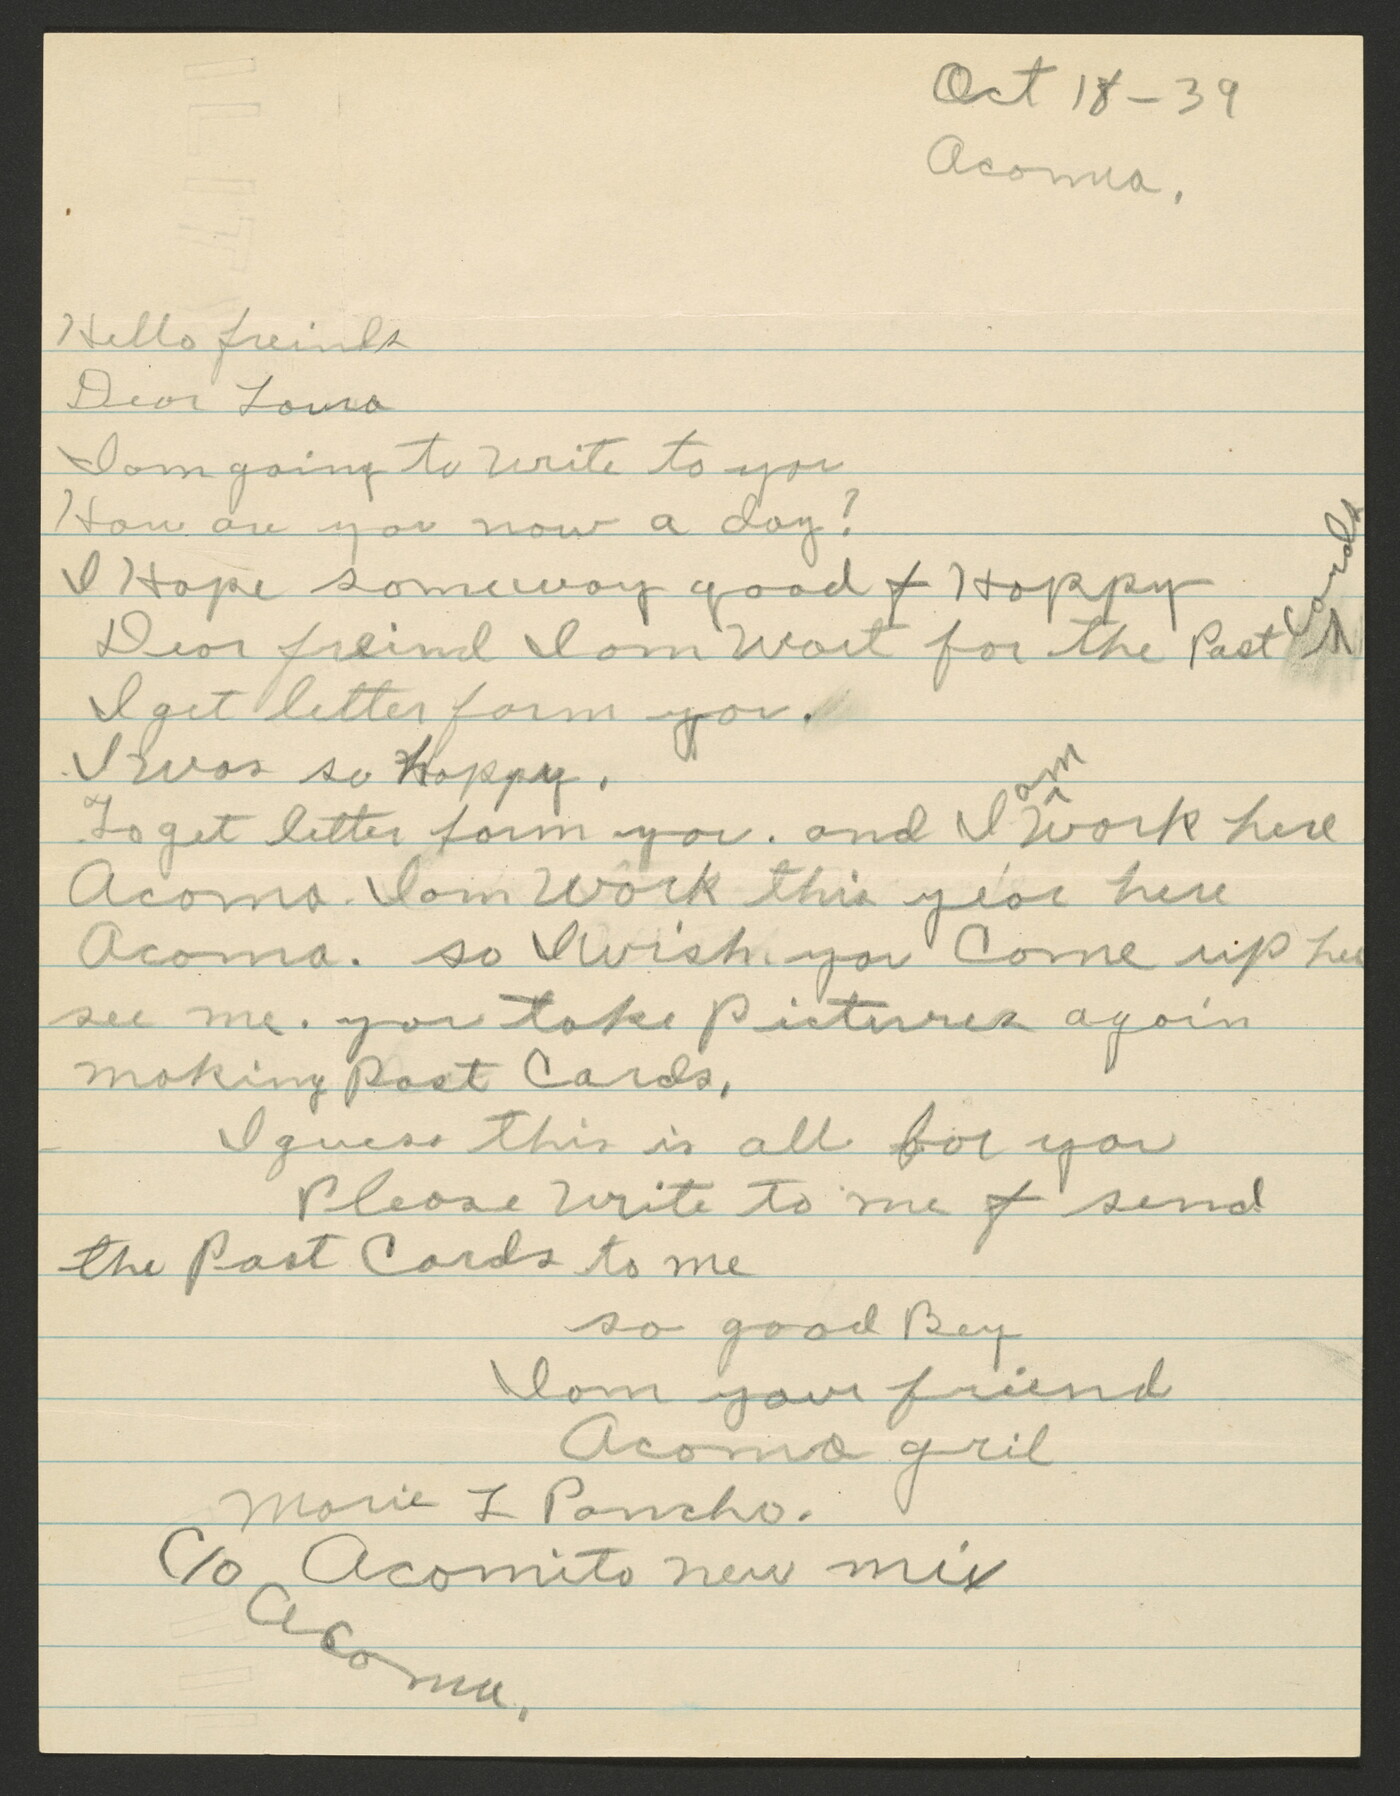 Oct 18 - 39
Acoma.
Hello freinds
Dear Loura
I am going to write to you
How are you now a day?
I Hope someway good & Happy
Dear freind I am Wait for the Post Cards
I get letter form you.
I was so Happy.
To get letter form you. and I am Work here
Acoma. I am Work this year here
Acoma. so I wish you Come up here
see me. you take Pictures again
making Post Cards,
I guess this is all for you
Please Write to me & send
the Post Cards to me
so good Bey
I am your friend
Acoma gril
Marie L Pancho.
C/o Acomita new mix
Acoma.